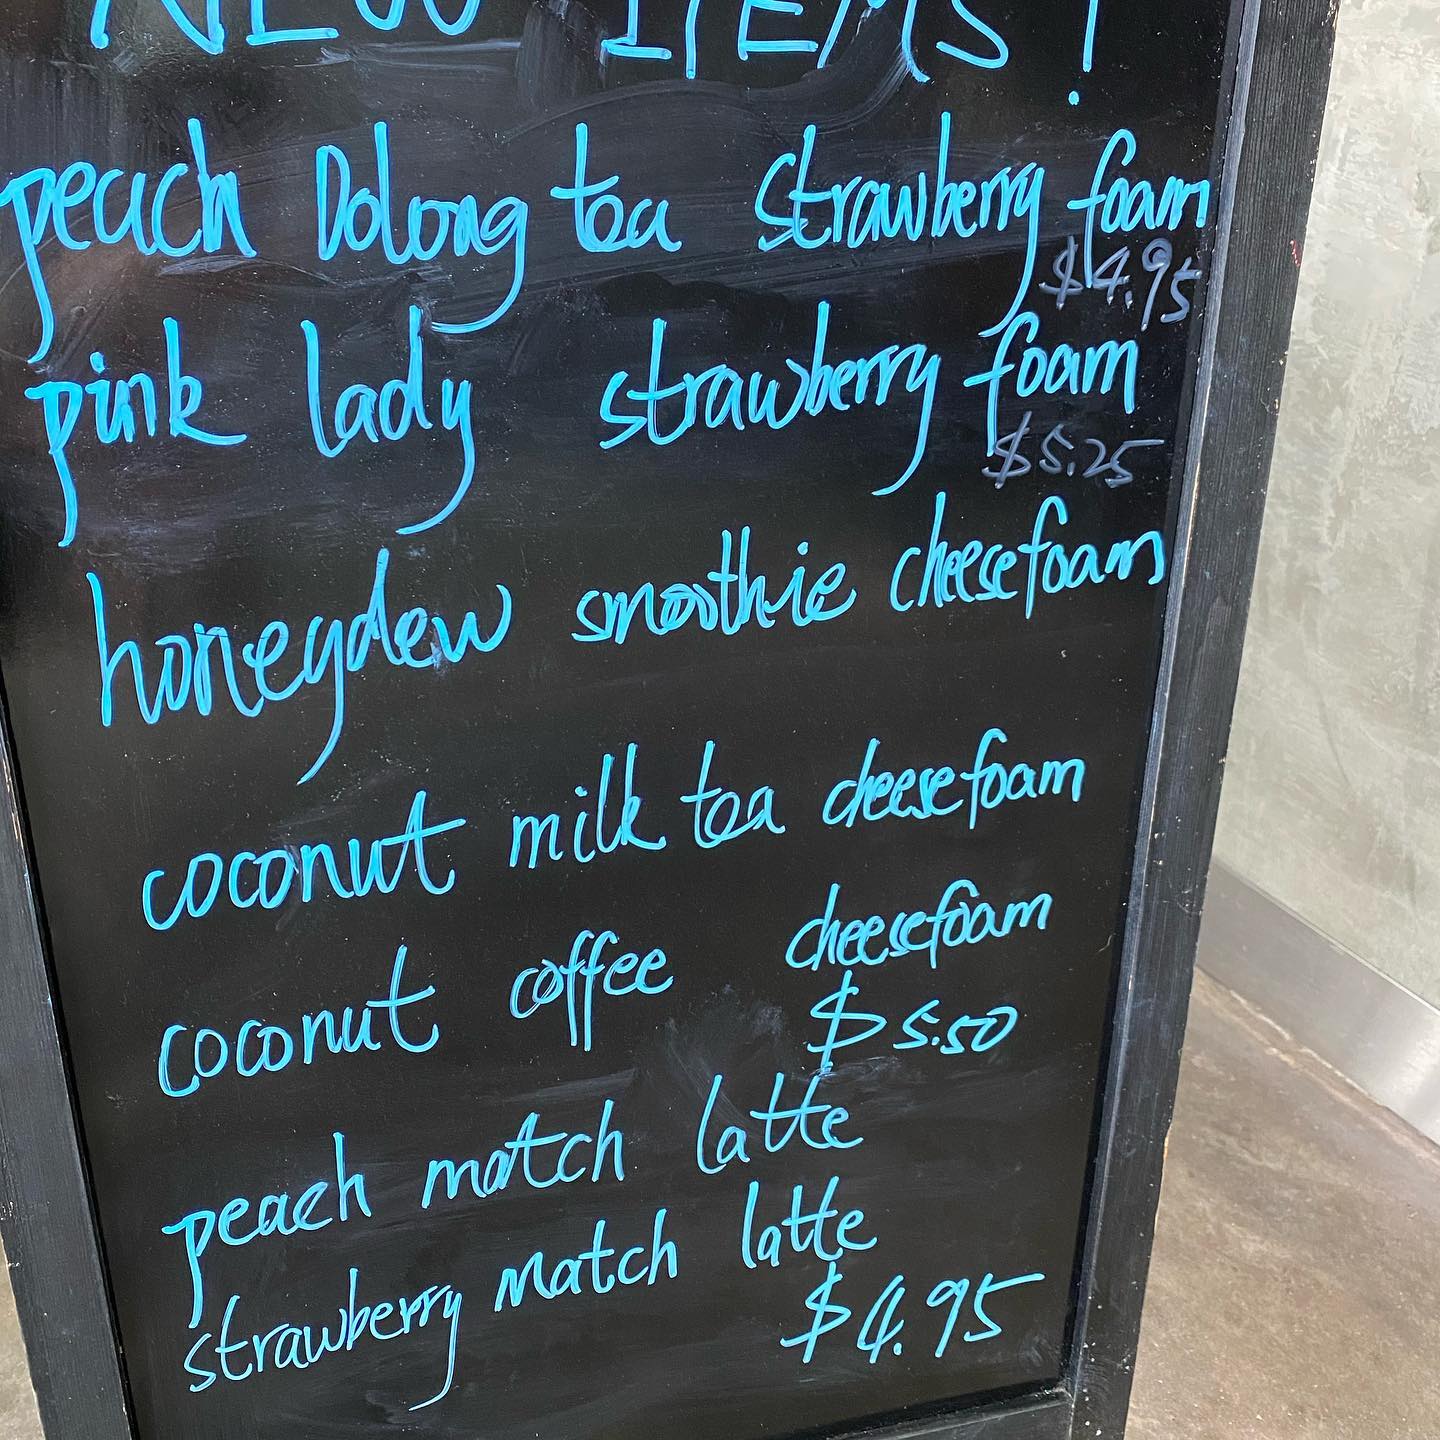 NEW ITEMS!
peach Oolong tea strawberry foam
$4.95
pink lady strawberry foam
$5.25
honeydew smoothie cheesefoam
coconut milk tea cheesefoam
coconut coffee cheesefoam
$5.50
peach match latte
strawberry match latte
$4.95